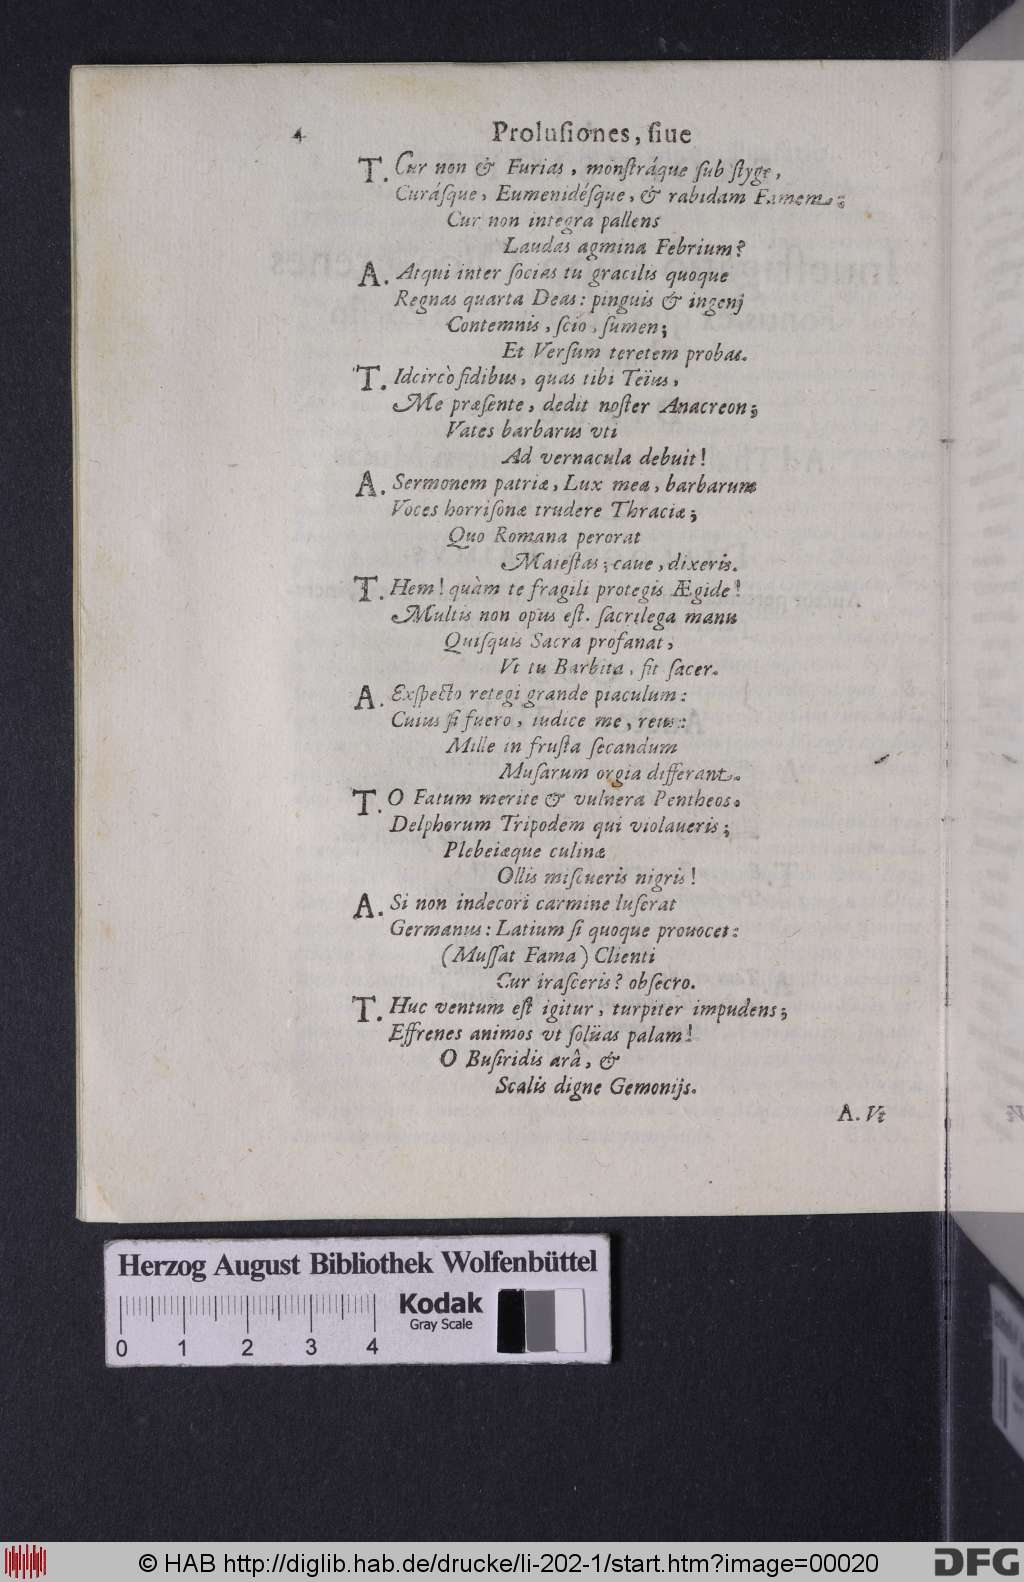 4 Proluſiones, ſiue
T. Cur non & Furias, monſtráque ſub ſtyge,
Curáſque, Eumenidéſque, & rabidam Famem;
Cur non integra pallens
Laudas agmina Febrium?
A. Atqui inter ſocias tu gracilis quoque
Regnas quarta Deas: pinguis & ingenj
Contemnis, ſcio, ſumen;
Et Verſum teretem probas.
T. Idcircò fidibus, quas tibi Teïus,
Me præſente, dedit noſter Anacreon;
Vates barbarus vti
Ad vernacula debuit!
A. Sermonem patriæ, Lux mea, barbarum
Voces horriſonæ trudere Thraciæ;
Quo Romana perorat
Maieſtas; caue, dixeris.
T. Hem! quàm te fragili protegis Ægide!
Multis non opus eſt. ſacrilega manu
Quiſquis Sacra profanat,
Vt tu Barbita, ſit ſacer.
A. Exſpecto retegi grande piaculum:
Cuius ſi fuero, iudice me, reus:
Mille in fruſta ſecandum
Muſarum orgia differant.
T. O Fatum merite & vulnera Pentheos.
Delphorum Tripodem qui violaueris;
Plebeiæque culinæ
Ollis miſcueris nigris!
A. Si non indecori carmine luſerat
Germanus: Latium ſi quoque prouocet:
(Muſſat Fama) Clienti
Cur iraſceris? obſecro.
T. Huc ventum eſt igitur, turpiter impudens;
Effrenes animos vt ſolüas palam!
O Buſiridis arâ, &
Scalis digne Gemonijs.
A. Vt
Herzog August Bibliothek Wolfenbüttel
Kodak
Gray Scale
0 1 2 3 4
© HAB http://diglib.hab.de/drucke/li-202-1/start.htm?image=00020
DFG